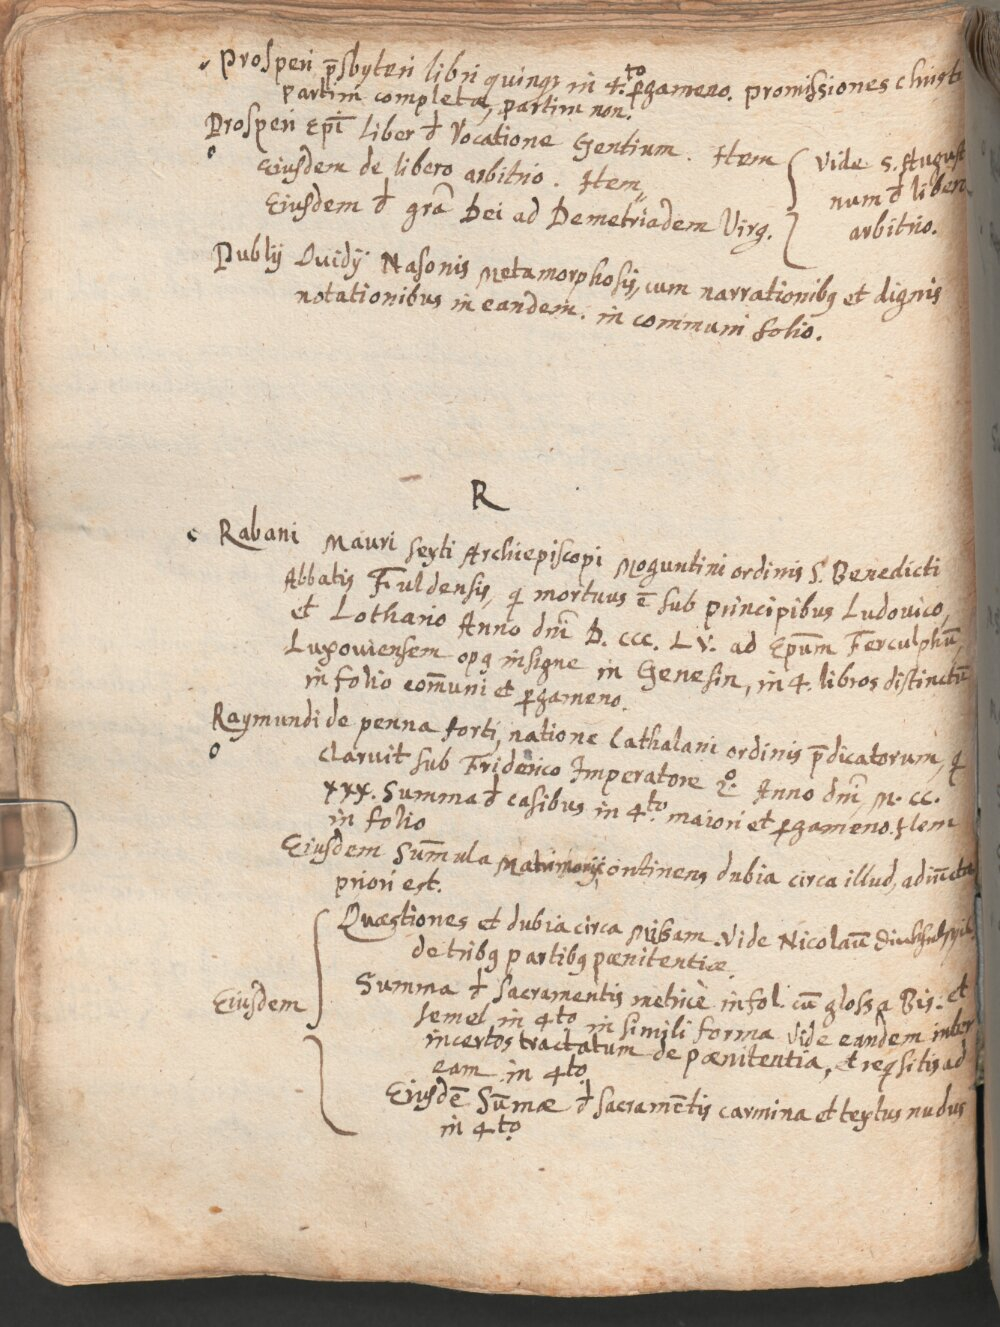 Prosperi p̄sbyteri libri quinqꝫ in 4.to ꝑgameno. promissiones christi
partim completæ, partim non.
Prosperi Epī liber đ Vocatione Gentium. Item
Eiusdem de libero arbitrio. Item,
Eiusdem đ gr̄a Dei ad Demetriadem Virg.
Vide S. August
num đ libero
arbitrio.
Publij Ouidij Nasonis Metamorphosis, cum narrationibꝫ et dignis
notationibus in eandem. in communi folio.
R
Rabani Mauri sexti Archiepiscopi Moguntini ordinis S. Benedicti
Abbatis Fuldensis, q mortuus ē sub principibus Ludovico,
et Lothario Anno dnī D. ccc. L V. ad Epūm Ferculphū
Luxouiensem opꝫ insigne in Genesin, in 4. libros distinctū
in folio com̄uni et ꝑgameno.
Raymundi de penna forti, natione Cathalani ordinis p̄dicatorum, q
claruit sub Friderico Imperatore 2.o Anno dnī M. cc.
xxx. Summa đ casibus in 4to maiori et ꝑgameno. Item
in folio
Eiusdem Sum̄ula Matrimonij continens dubia circa illud, adiūcta
priori est.
Eiusdem
Quæstiones et dubia circa Missam Vide Nicolaū
de tribꝫ partibꝫ pœnitentiæ.
Summa đ sacramentis metricè in fol. cū glossa Bis. et
semel in 4to in simili forma Vide eandem inter
incertos tractatum de pœnitentia, et reqsitis ad
eam in 4to
Eiusdē Sūmæ đ sacramētis carmina et textus nudus
in 4to